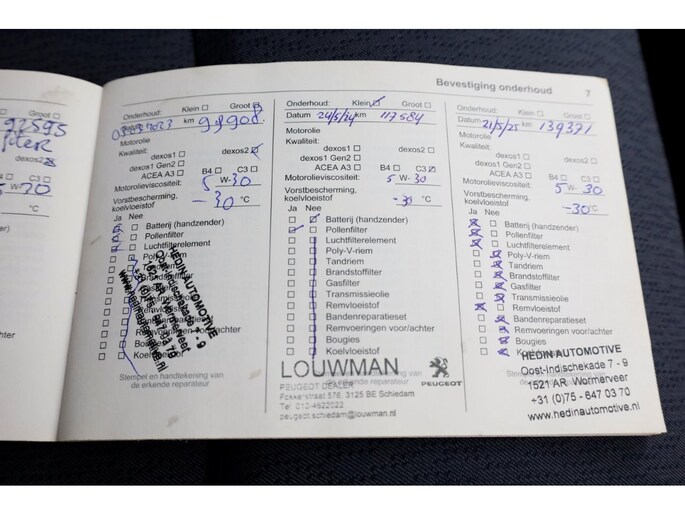 Bevestiging onderhoud 7
92595
dexos2
C3
W-20
Onderhoud: Klein Groot
km 99908
Motorolie
Kwaliteit:
dexos1 dexos2
dexos1 Gen2
ACEA A3 B4 C3
Motorolieviscositeit: 5 W-30
Vorstbescherming,
koelvloeistof -30 °C
Ja Nee
Batterij (handzender)
Pollenfilter
Luchtfilterelement
Poly-V-riem
Tandriem
Brandstoffilter
Stempel en handtekening van
de erkende reparateur
HEDIN AUTOMOTIVE
Oost-Indischekade 7 - 9
Onderhoud: Klein Groot
Datum 24/5/24 km 117584
Motorolie
Kwaliteit:
dexos1 dexos2
dexos1 Gen2
ACEA A3 B4 C3
Motorolieviscositeit: 5 W-30
Vorstbescherming,
koelvloeistof -30 °C
Ja Nee
Batterij (handzender)
Pollenfilter
Luchtfilterelement
Poly-V-riem
Tandriem
Brandstoffilter
Gasfilter
Transmissieolie
Remvloeistof
Bandenreparatieset
Remvoeringen voor/achter
Bougies
Koelvloeistof
LOUWMAN
PEUGEOT DEALER
PEUGEOT
Fokkerstraat 576, 3125 BE Schiedam
Tel. 010-4622022
peugeot.schiedam@louwman.nl
Onderhoud: Klein Groot
Datum 21/5/25 km 139371
Motorolie
Kwaliteit:
dexos1 dexos2
dexos1 Gen2
ACEA A3 B4 C3
Motorolieviscositeit: 5 W-30
Vorstbescherming,
koelvloeistof -30 °C
Ja Nee
Batterij (handzender)
Pollenfilter
Luchtfilterelement
Poly-V-riem
Tandriem
Brandstoffilter
Gasfilter
Transmissieolie
Remvloeistof
Bandenreparatieset
Remvoeringen voor/achter
Bougies
Koelvloeistof
HEDIN AUTOMOTIVE
Oost-Indischekade 7 - 9
1521 AR Wormerveer
+31 (0)75 - 647 03 70
www.hedinautomotive.nl